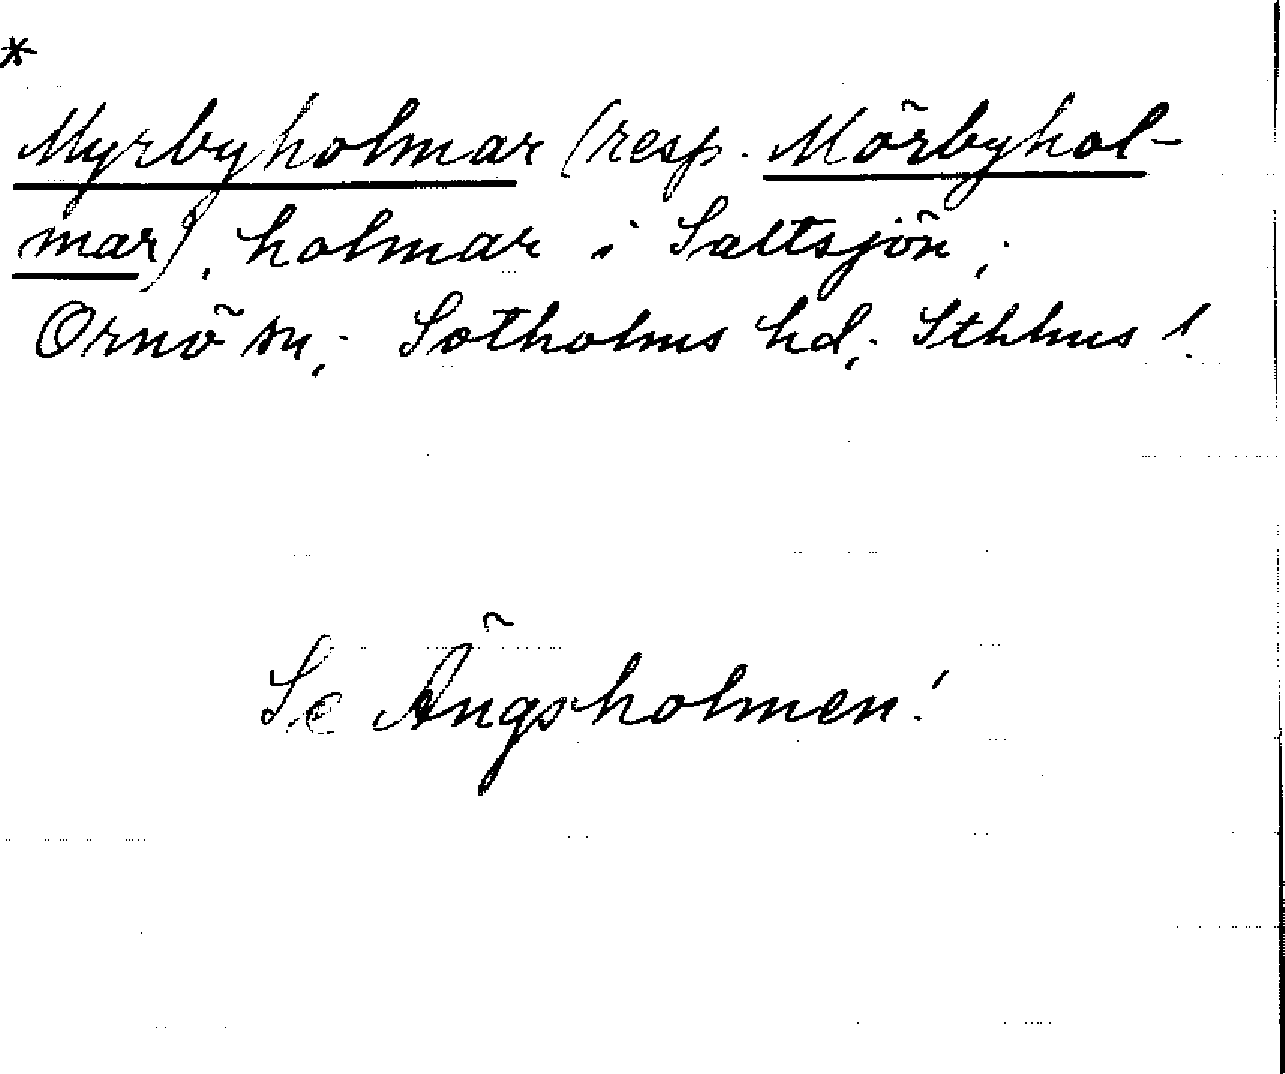 *
Myrbyholmar (resp. Mörbyhol-
mar), holmar i Saltsjön;
Ornö sn; Sotholms hd; Sthlms l.
Se Ängsholmen!